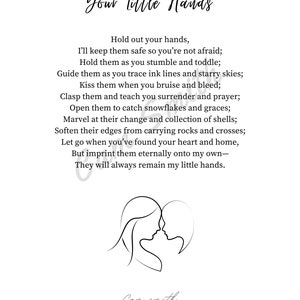 Your Little Hands
Hold out your hands,
I'll keep them safe so you're not afraid;
Hold them as you stumble and toddle;
Guide them as you trace ink lines and starry skies;
Kiss them when you bruise and bleed;
Clasp them and teach you surrender and prayer;
Open them to catch snowflakes and graces;
Marvel at their change and collection of shells;
Soften their edges from carrying rocks and crosses;
Let go when you've found your heart and home,
But imprint them eternally onto my own—
They will always remain my little hands.